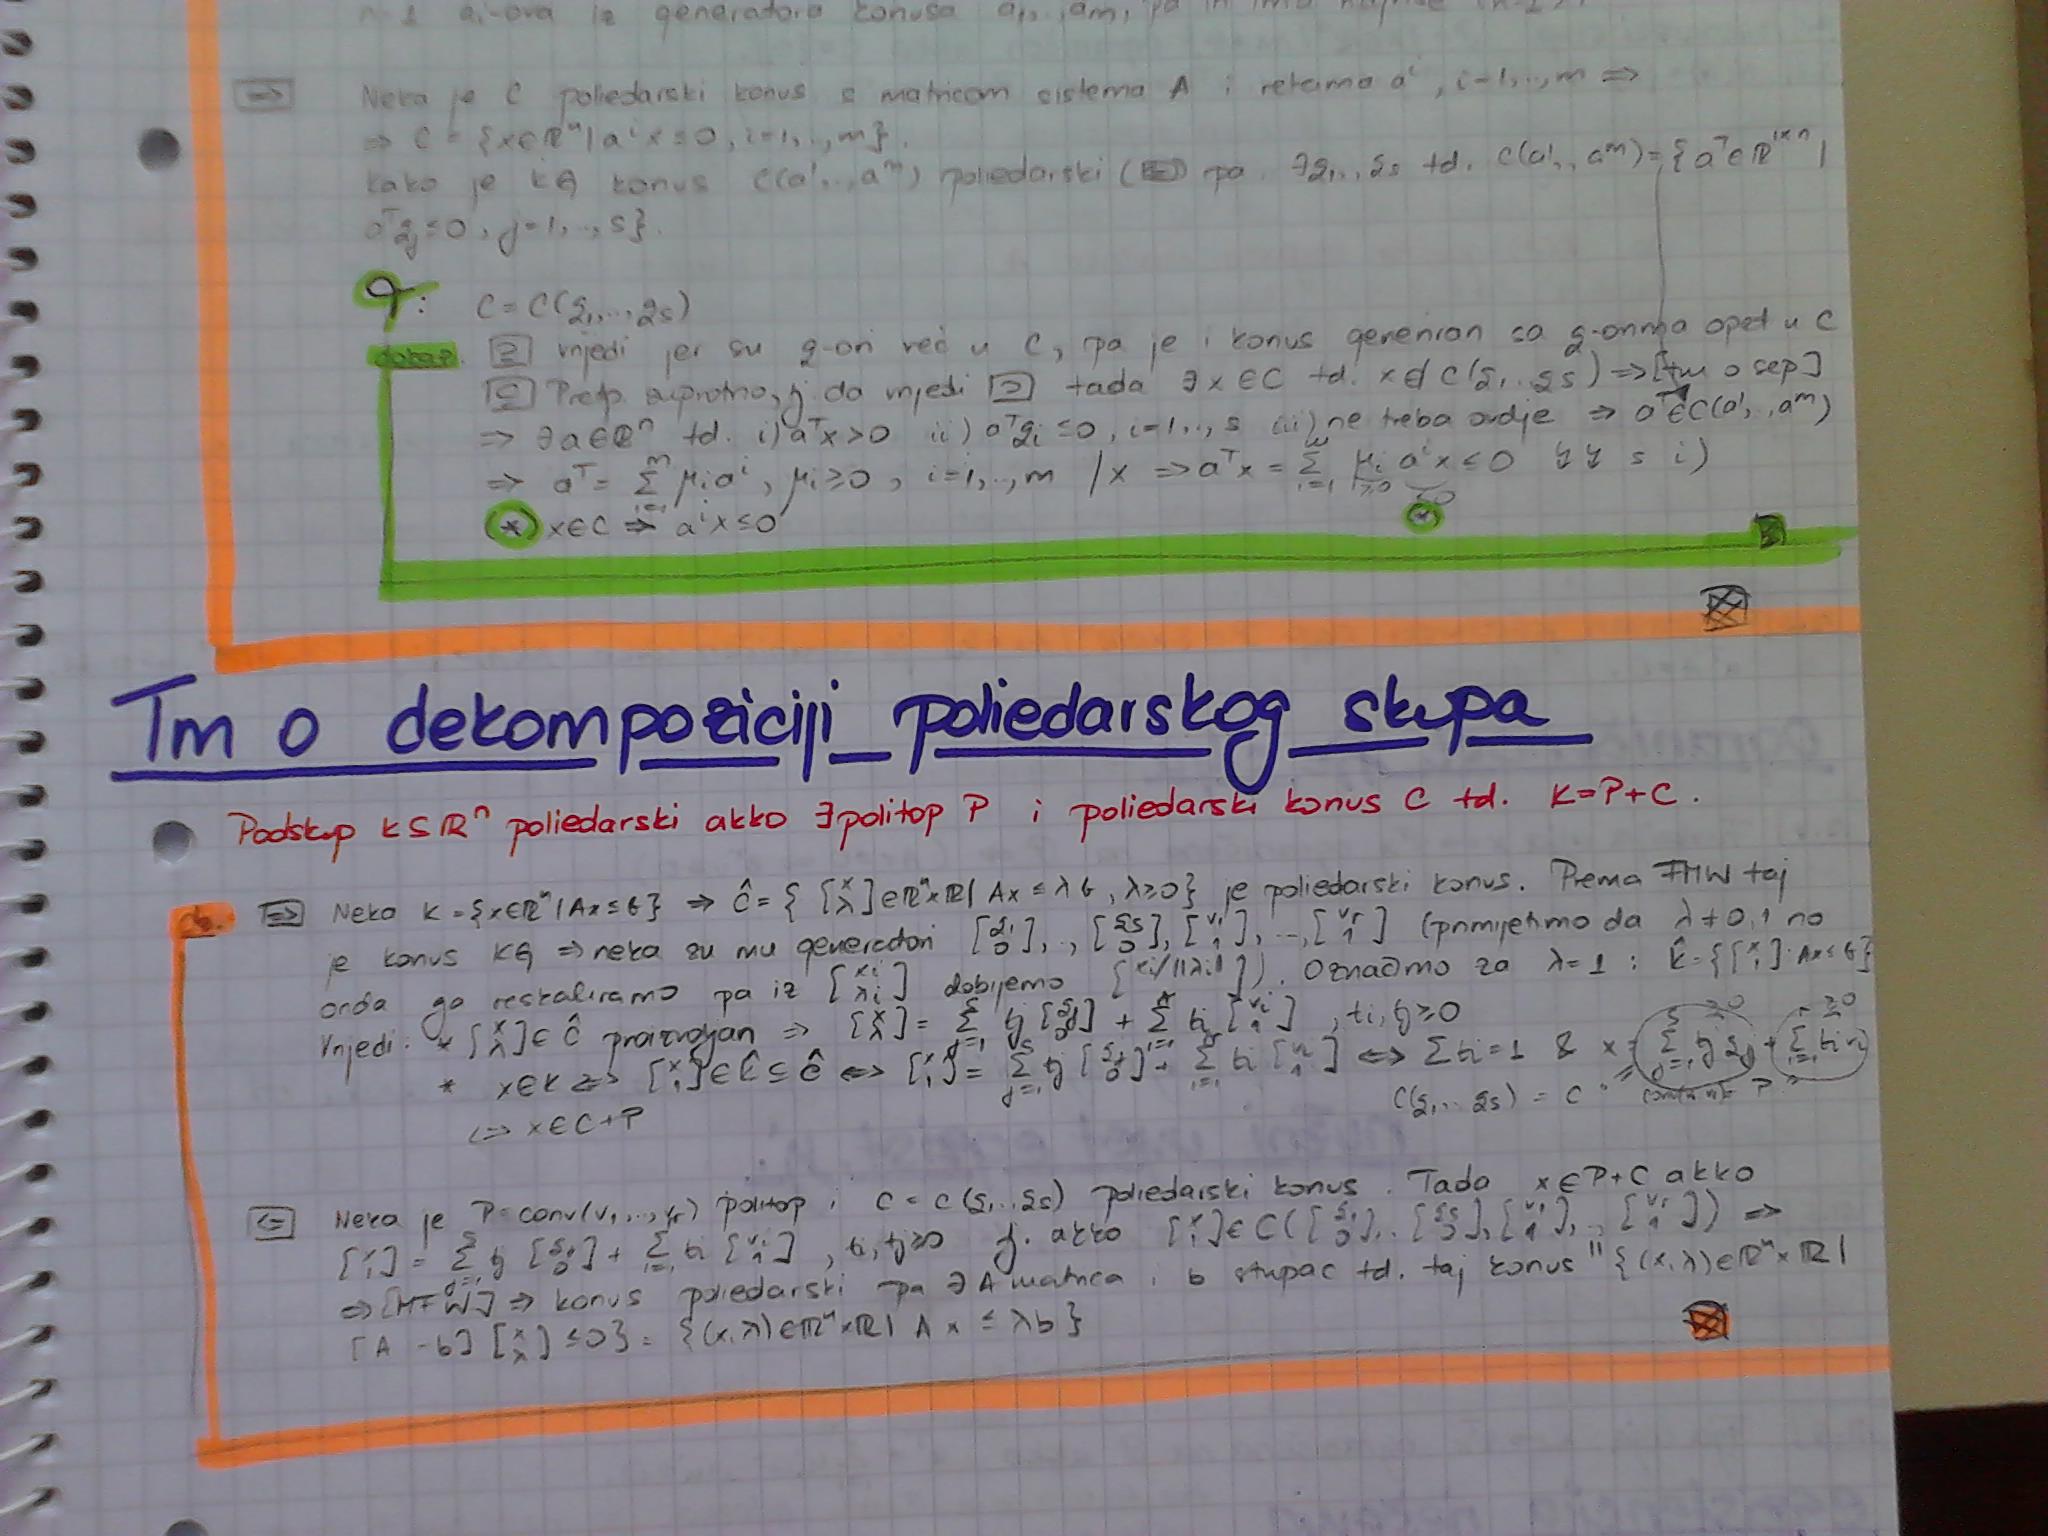 n-1 ai-ova iz generatora konusa a₁,..,am, pa ih ima najviše
⇒ Neka je C poliedarski konus s matricom sistema A i retcima aⁱ, i=1,..,m ⇒
⇒ C = {x∈ℝⁿ | aⁱx ≤ 0, i=1,..,m}.
Kako je KG konus C(a¹,..,aᵐ) poliedarski (⇐) pa ∃g₁,..,gs td. C(a¹,..,aᵐ) = {aᵀ∈ℝ¹ˣⁿ |
aᵀgj ≤ 0, j=1,..,s}.
C = C(g₁,..,gs)
dokaz. ⊇ vrijedi jer su g-ovi već u C, pa je i konus generiran sa g-ovima opet u C
⊆ Pretp. suprotno, tj. da vrijedi ⊃ tada ∃x∈C td. x∉C(g₁,..gs) ⇒ [tm o sep]
⇒ ∃a∈ℝⁿ td. i) aᵀx>0 ii) aᵀgi ≤0, i=1,..,s iii) ne treba ovdje ⇒ aᵀ∈C(a¹,..,aᵐ)
⇒ aᵀ = Σᵢ₌₁ᵐ μi aⁱ, μi≥0, i=1,..,m /x ⇒ aᵀx = Σᵢ₌₁ᵐ μi aⁱx ≤ 0 ↯↯ s i)
≥0 ≤0
(*) x∈C ⇒ aⁱx ≤ 0 (*)
Tm o dekompoziciji poliedarskog skupa
Podskup K⊆ℝⁿ poliedarski akko ∃politop P i poliedarski konus C td. K=P+C.
⇒ Neka K={x∈ℝⁿ | Ax≤b} ⇒ Ĉ = {[x λ]∈ℝⁿ×ℝ | Ax ≤ λb, λ≥0} je poliedarski konus. Prema FMW taj
je konus KG ⇒ neka su mu generatori [g₁ 0],..,[gs 0],[v₁ 1],...,[vr 1] (primijetimo da λ≠0,1 no
onda ga reskaliramo pa iz [xi λi] dobijemo [xi/|λi| 1]). Označimo za λ=1: K̂={[x 1]: Ax≤b}
Vrijedi: * [x λ]∈Ĉ proizvoljan ⇒ [x λ] = Σⱼ₌₁ˢ tj [gj 0] + Σᵢ₌₁ʳ ti [vi 1], ti, tj≥0
* x∈K ⇔ [x 1]∈K̂⊆Ĉ ⇔ [x 1] = Σⱼ₌₁ˢ tj [gj 0] + Σᵢ₌₁ʳ ti [vi 1] ⇔ Σti=1 & x = Σⱼ₌₁ˢ tj gj + Σᵢ₌₁ʳ ti vi
C(g₁,..gs) = C
⇔ x∈C+P
⇐ Neka je P=conv(v₁,..,vr) politop i C=C(g₁,..gs) poliedarski konus. Tada x∈P+C akko
[x 1] = Σⱼ₌₁ˢ tj [gj 0] + Σᵢ₌₁ʳ ti [vi 1], ti, tj≥0 tj. akko [x 1]∈C([g₁ 0],..[gs 0],[v₁ 1],..,[vr 1]) ⇒
⇒ [MFW] ⇒ konus poliedarski pa ∃A matrica i b stupac td. taj konus = {(x,λ)∈ℝⁿ×ℝ |
[A -b] [x λ] ≤0} = {(x,λ)∈ℝⁿ×ℝ | Ax ≤ λb}